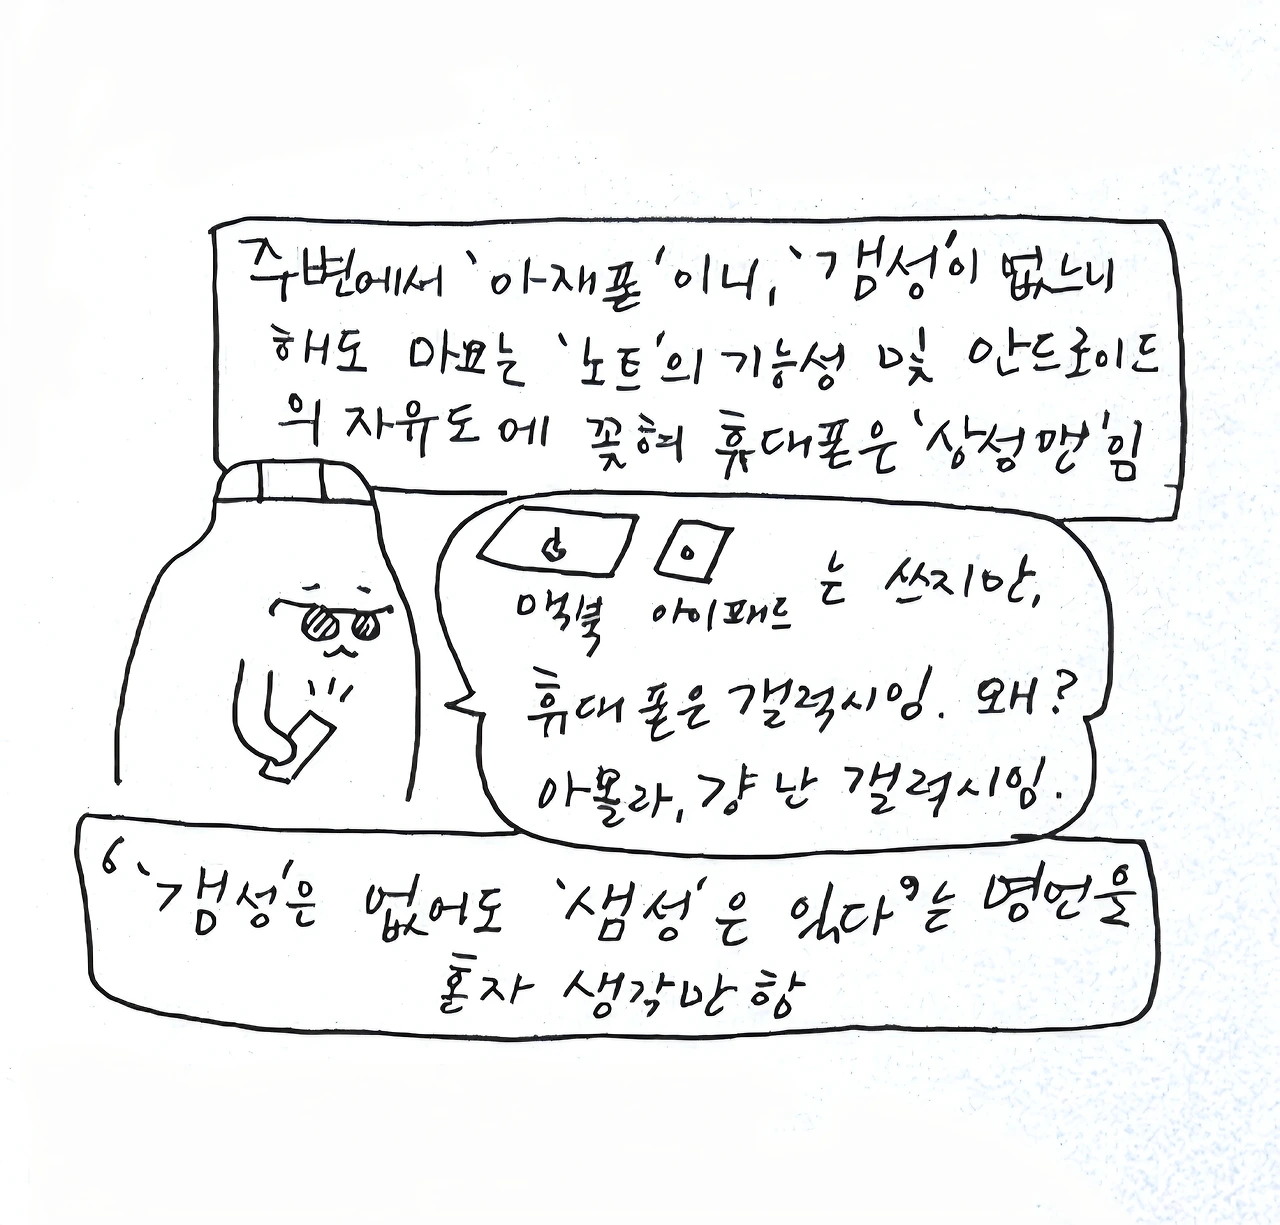 주변에서 '아재폰'이니, '갬성'이 없느니
해도 마요는 '노트'의 기능성 및 안드로이드
의 자유도에 꽂혀 휴대폰은 '삼성맨'임
맥북 아이패드 는 쓰지만,
휴대폰은 갤럭시임. 왜?
아몰라, 걍 난 갤럭시임.
"'갬성'은 없어도 '샘성'은 있다"는 명언을
혼자 생각만 함